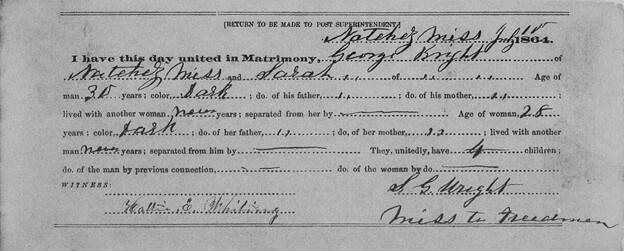 [RETURN TO BE MADE TO POST SUPERINTENDENT.]
Natchez Miss July 1864.
I have this day united in Matrimony, George Wright of
Natchez Miss and Sarah ,, of ,, ,, Age of
man 30 years; color, Dark ; do. of his father, ,, ; do. of his mother ,, ;
lived with another woman years; separated from her by — Age of woman, 28
years; color, Dark ; do. of her father, ,, ; do. of her mother, ,, ; lived with another
man years; separated from him by — They, unitedly, have 4 children;
do. of the man by previous connection, — do. of the woman by do. —
WITNESS: S G Wright
Hattie E. Whiting Miss to Freedmen